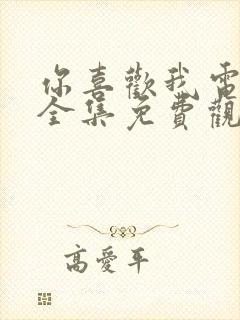 你喜歡我電
全集免費觀
高愛平